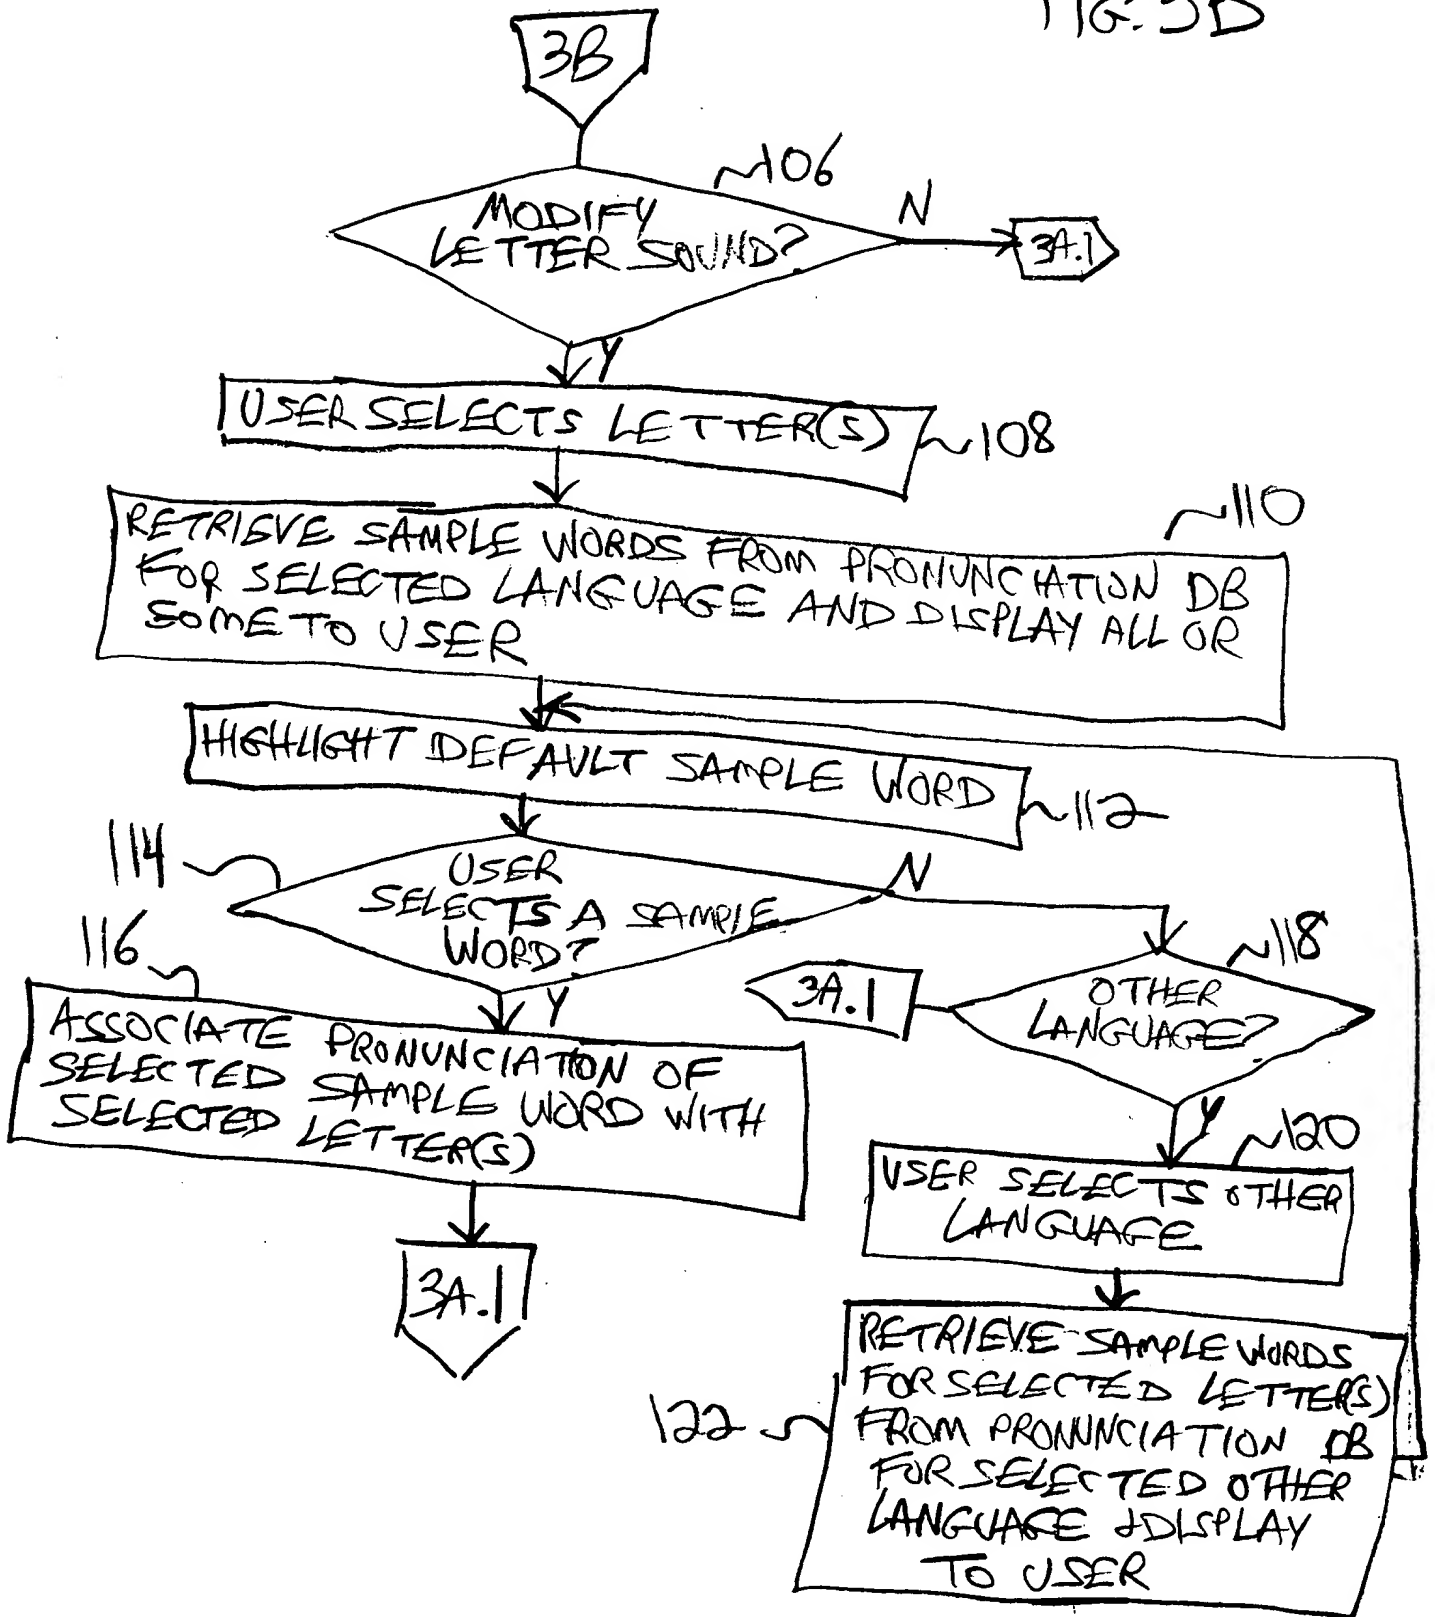 FIG. 3B
3B
106
MODIFY
LETTER SOUND?
N
3A.1
Y
USER SELECTS LETTER(S)
108
110
RETRIEVE SAMPLE WORDS FROM PRONUNCIATION DB
FOR SELECTED LANGUAGE AND DISPLAY ALL OR
SOME TO USER
HIGHLIGHT DEFAULT SAMPLE WORD
112
114
USER
SELECTS A SAMPLE
WORD?
N
Y
116
118
OTHER
LANGUAGE?
3A.1
Y
ASSOCIATE PRONUNCIATION OF
SELECTED SAMPLE WORD WITH
SELECTED LETTER(S)
3A.1
120
USER SELECTS OTHER
LANGUAGE
122
RETRIEVE SAMPLE WORDS
FOR SELECTED LETTER(S)
FROM PRONUNCIATION DB
FOR SELECTED OTHER
LANGUAGE & DISPLAY
TO USER